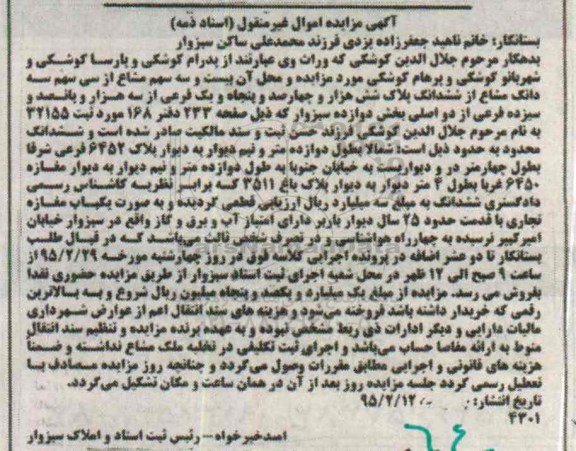 آگهی مزایده اموال غیرمنقول (اسناد ذمه)
بستانکار: خانم ناهید جعفرزاده یزدی فرزند محمدعلی ساکن سبزوار
بدهکار مرحوم جلال الدین کوشکی که وراث وی عبارتند از پدرام کوشکی و پارسا کوشکی و
شهربانو کوشکی و پرهام کوشکی مورد مزایده و محل آن بیست و سه سهم مشاع از سی سهم سه
دانگ مشاع از ششدانگ پلاک شش هزار و چهارصد و پنجاه و یک فرعی از سه هزار و پانصد و
سیزده فرعی از دو اصلی بخش دوازده سبزوار که ذیل صفحه ۲۳۳ دفتر ۱۶۸ مورد ثبت ۳۲۱۵۵
به نام مرحوم جلال الدین کوشکی فرزند حسن ثبت و سند مالکیت صادر شده است و ششدانگ
محدود به حدود ذیل است: شمالا بطول دوازده متر و نیم دیوار به دیوار پلاک ۶۴۵۲ فرعی شرقا
بطول چهارمتر در و دیواریست به خیابان جنوبا به طول دوازده متر و نیم دیوار به دیوار مغازه
۶۴۵۰ غربا بطول ۴ متر دیوار به دیوار پلاک باغ ۳۵۱۱ که برابر نظریه کاشناس رسمی
دادگستری ششدانگ به مبلغ سه میلیارد ریال ارزیابی قطعی گردیده و به صورت یکباب مغازه
تجاری با قدمت حدود ۲۵ سال دیوار باربر دارای امتیاز آب و برق و گاز واقع در سبزوار خیابان
امیرکبیر نرسیده به چهارراه هواشناسی و در تصرف شخص ثالث می‌باشد که در قبال طلب
بستانکار تا دو عشر اضافه در پرونده اجرایی کلاسه فوق در روز چهارشنبه مورخه ۹۵/۲/۲۹ از
ساعت ۹ صبح الی ۱۲ ظهر در محل شعبه اجرای ثبت اسناد سبزوار از طریق مزایده حضوری نقدا
بفروش می رسد. مزایده از مبلغ یک میلیارد و یکصد و پنجاه میلیون ریال شروع و به بالاترین
رقمی که خریدار داشته باشد فروخته می‌شود و هزینه های سند انتقال اعم از عوارض شهرداری
مالیات دارایی و دیگر ادارات ذی ربط مشخص نبوده و به عهده برنده مزایده و تنظیم سند انتقال
منوط به ارائه مفاصا حساب می‌باشد و اجرای ثبت تکلیفی در تخلیه ملک مشاع نداشته و ضمنا
هزینه های قانونی و اجرایی مطابق مقررات وصول می‌گردد و چنانچه روز مزایده مصادف با
تعطیل رسمی گردد جلسه مزایده روز بعد از آن در همان ساعت و مکان تشکیل می‌گردد.
تاریخ انتشار: ۹۵/۲/۱۲
۴۳۰۱
اسدخیرخواه – رئیس ثبت اسناد و املاک سبزوار